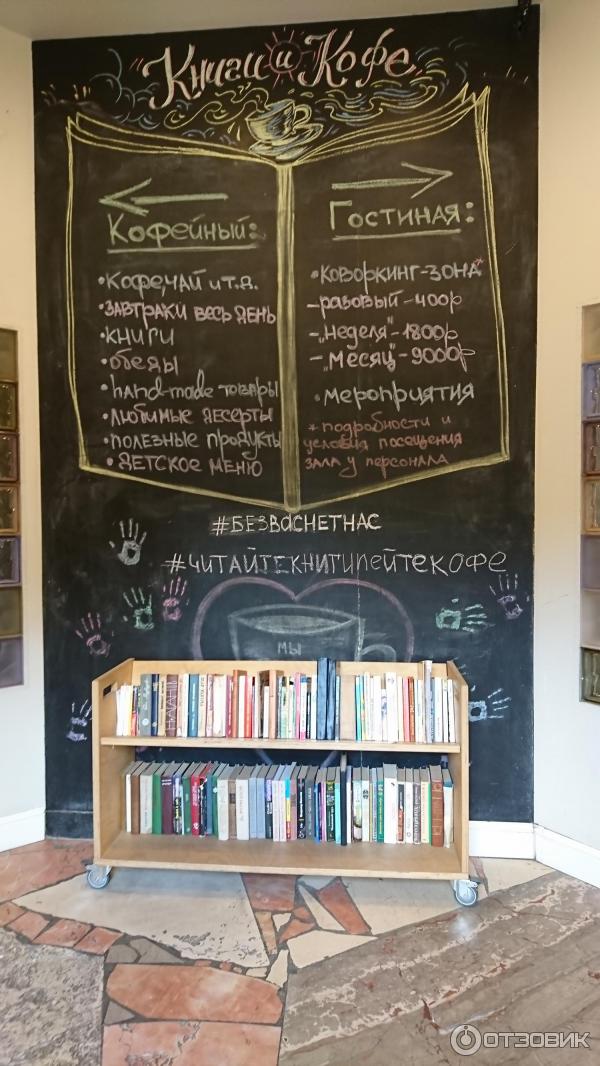 Книги и Кофе
Кофейный:
• кофе, чай и т.д.
• завтраки весь день
• книги
• обеды
• hand-made товары
• любимые десерты
• полезные продукты
• детское меню
Гостиная:
• коворкинг-зона*
- разовый - 400р
- „неделя" - 1800р
- „месяц" - 9000р
• мероприятия
* подробности и
условия посещения
зала у персонала
#БЕЗВАСНЕТНАС
#ЧИТАЙТЕКНИГИПЕЙТЕКОФЕ
МЫ
ОТЗОВИК